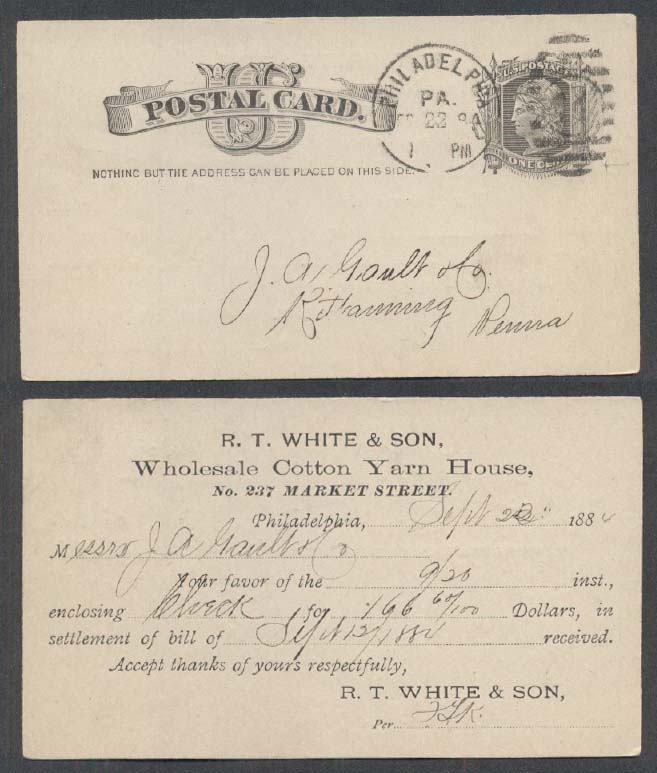 US
POSTAL CARD.
NOTHING BUT THE ADDRESS CAN BE PLACED ON THIS SIDE.
PHILADELPHIA
PA.
22
1 PM
U.S. POSTAGE
ONE CENT
J. A. Gault & Co.
Kittanning
Penna
R. T. WHITE & SON,
Wholesale Cotton Yarn House,
No. 237 MARKET STREET.
Philadelphia, Sept 22" 1884
Messrs J A Gault & Co
Your favor of the 9/20 inst.,
enclosing Check for 166 60/100 Dollars, in
settlement of bill of Sept 12/1884 received.
Accept thanks of yours respectfully,
R. T. WHITE & SON,
Per